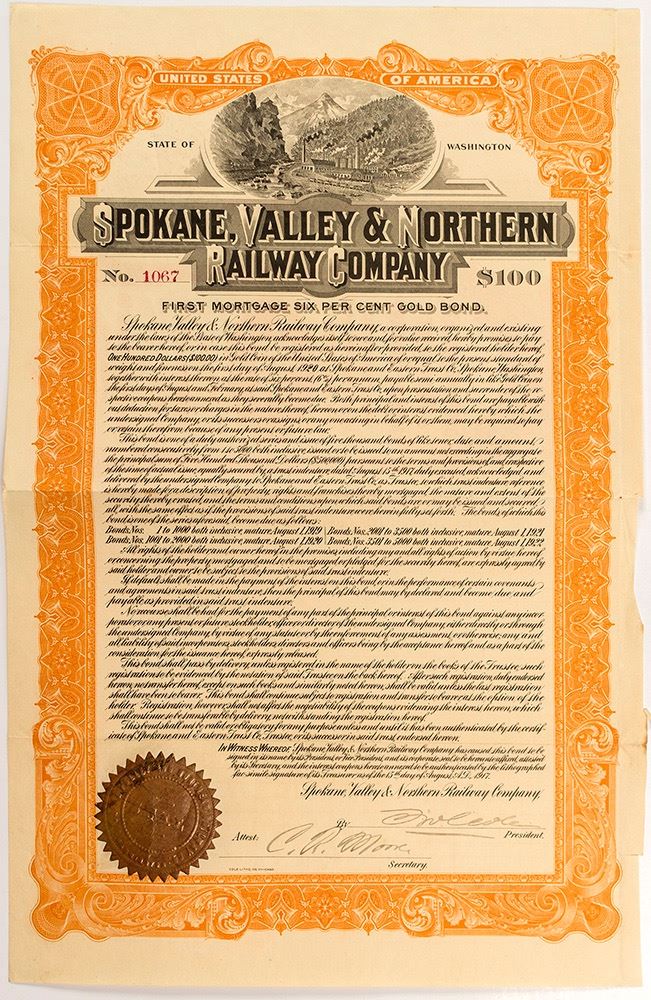 UNITED STATES OF AMERICA
STATE OF WASHINGTON
SPOKANE, VALLEY & NORTHERN
RAILWAY COMPANY
No. 1067 $100
FIRST MORTGAGE SIX PER CENT GOLD BOND.
Spokane Valley & Northern Railway Company, a corporation, organized and existing
under the laws of the State of Washington, acknowledges itself to owe and for value received, hereby promises to pay
to the bearer hereof, or in case this bond be registered as hereinafter provided, to the registered holder hereof
ONE HUNDRED DOLLARS ($100.00) in Gold Coin of the United States of America of or equal to the present standard of
weight and fineness on the first day of August 1920 at Spokane and Eastern Trust Co., Spokane, Washington
together with interest thereon at the rate of six per cent (6%) per annum, payable semi-annually in like Gold Coin on
the first days of August and February, at said Spokane and Eastern Trust Co., upon presentation and surrender of the re-
spective coupons hereto annexed as they severally become due. Both principal and interest of this bond are payable with-
out deduction for taxes or charges in the nature thereof, hereon or on the debt or interest evidenced hereby which the
undersigned Company, or its successors or assigns, or any one acting in behalf of it or them, may be required to pay
or retain therefrom because of any present or future law.
This bond is one of a duly authorized series and issue of five thousand bonds of like tenor, date and amount,
numbered consecutively from 1 to 5000 both inclusive, issued or to be issued to an amount not exceeding in the aggregate
the principal sum of Five Hundred Thousand Dollars ($500,000) pursuant to the terms and provisions of, and irrespective
of the time of actual issue, equally secured by a trust indenture, dated August 15th 1917, duly executed, acknowledged and
delivered by the undersigned Company to Spokane and Eastern Trust Co., as Trustee, to which trust indenture reference
is hereby made for a description of property, rights and franchises thereby mortgaged, the nature and extent of the
security thereby created, and the terms and conditions upon which said bonds are or may be issued and secured,
all with the same effect as if the provisions of said trust indenture were herein fully set forth. The bonds of which this
bond is one of the series aforesaid, become due as follows:
Bonds, Nos. 1 to 1000 both inclusive, mature, August 1, 1919 Bonds, Nos. 2001 to 3500 both inclusive, mature, August 1, 1921
Bonds, Nos. 1001 to 2000 both inclusive, mature, August 1, 1920 Bonds, Nos. 3501 to 5000 both inclusive, mature, August 1, 1922
All rights of the holder and owner hereof in the premises, including any and all rights of action by virtue hereof
or concerning the property mortgaged and to be mortgaged or pledged for the security hereof, are expressly agreed by
said holder and owner to be subject to the provisions of said trust indenture.
If default shall be made in the payment of the interest on this bond, or in the performance of certain covenants
and agreements in said trust indenture, then the principal of this bond may be declared and become due and
payable as provided in said trust indenture.
No recourse shall be had for the payment of any part of the principal or interest of this bond against any incor-
porator or any present or future stockholder, officer or director of the undersigned Company, either directly or through
the undersigned Company by virtue of any statute or by the enforcement of any assessment or otherwise, any and
all liability of said incorporators, stockholders, directors and officers being by the acceptance hereof and as a part of the
consideration for the issuance hereof, expressly released.
This bond shall pass by delivery, unless registered in the name of the holder on the books of the Trustee, such
registration to be evidenced by the notation of said Trustee on the back hereof. After such registration, duly endorsed
hereon, no transfer hereof, except on such books and similarly noted hereon, shall be valid unless the last registration
shall have been to bearer. This bond shall continue subject to registration and transfer to bearer at the option of the
holder. Registration, however, shall not affect the negotiability of the coupons evidencing the interest hereon, which
shall continue to be transferable by delivery, notwithstanding the registration hereof.
This bond shall not be valid or obligatory for any purpose unless and until it has been authenticated by the certif-
icate of Spokane and Eastern Trust Co., Trustee, or its successor in said trust, endorsed hereon.
IN WITNESS WHEREOF, Spokane Valley & Northern Railway Company has caused this bond to be
signed in its name by its President or Vice President, and its corporate seal to be hereunto affixed, attested
by its Secretary, and the interest coupons hereto annexed to be authenticated by the lithographed
fac-simile signature of its Treasurer as of the 15th day of August A.D. 1917.
Spokane, Valley & Northern Railway Company,
By
President.
Attest: C. R. Moore
Secretary.